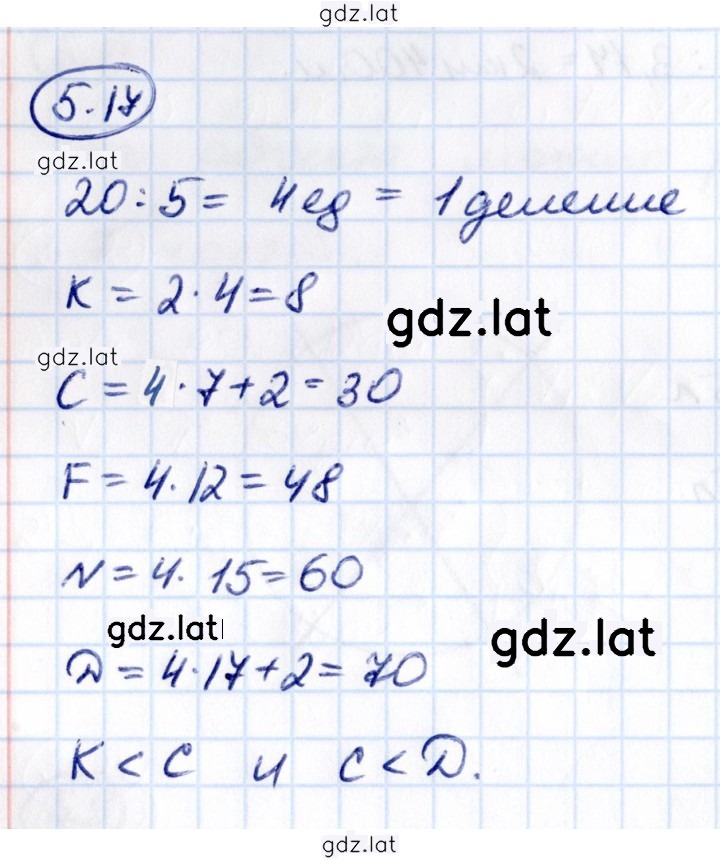 gdz.lat
5.17
gdz.lat
20:5= 4ед = 1 деление
K = 2·4=8
gdz.lat
gdz.lat
C = 4·7+2=30
F = 4·12=48
N = 4·15=60
gdz.lat
gdz.lat
D = 4·17+2=70
K < C и C < D.
gdz.lat